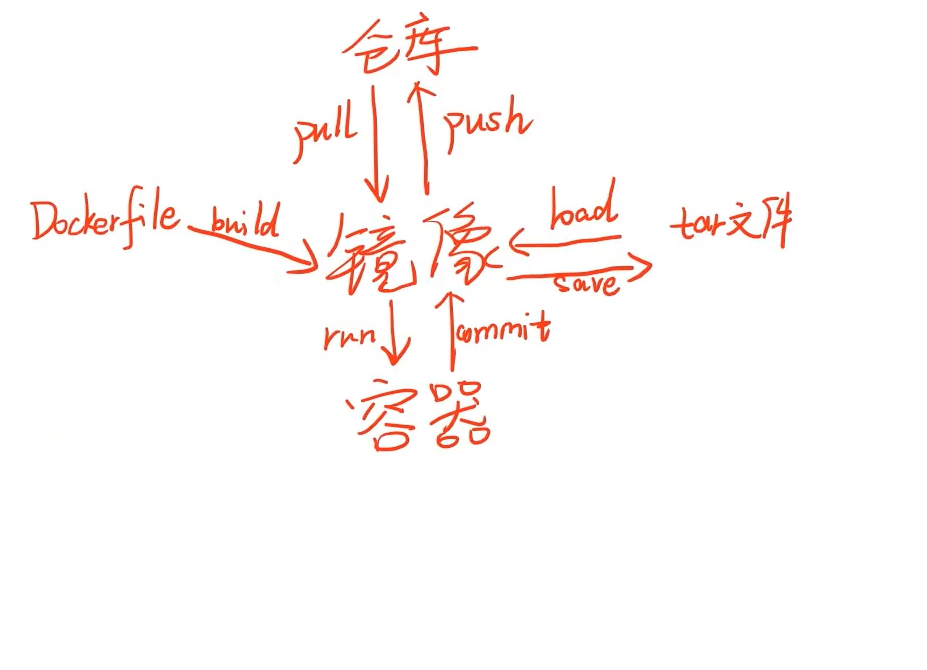 仓库
pull
push
Dockerfile
build
镜像
load
save
tar文件
run
commit
容器